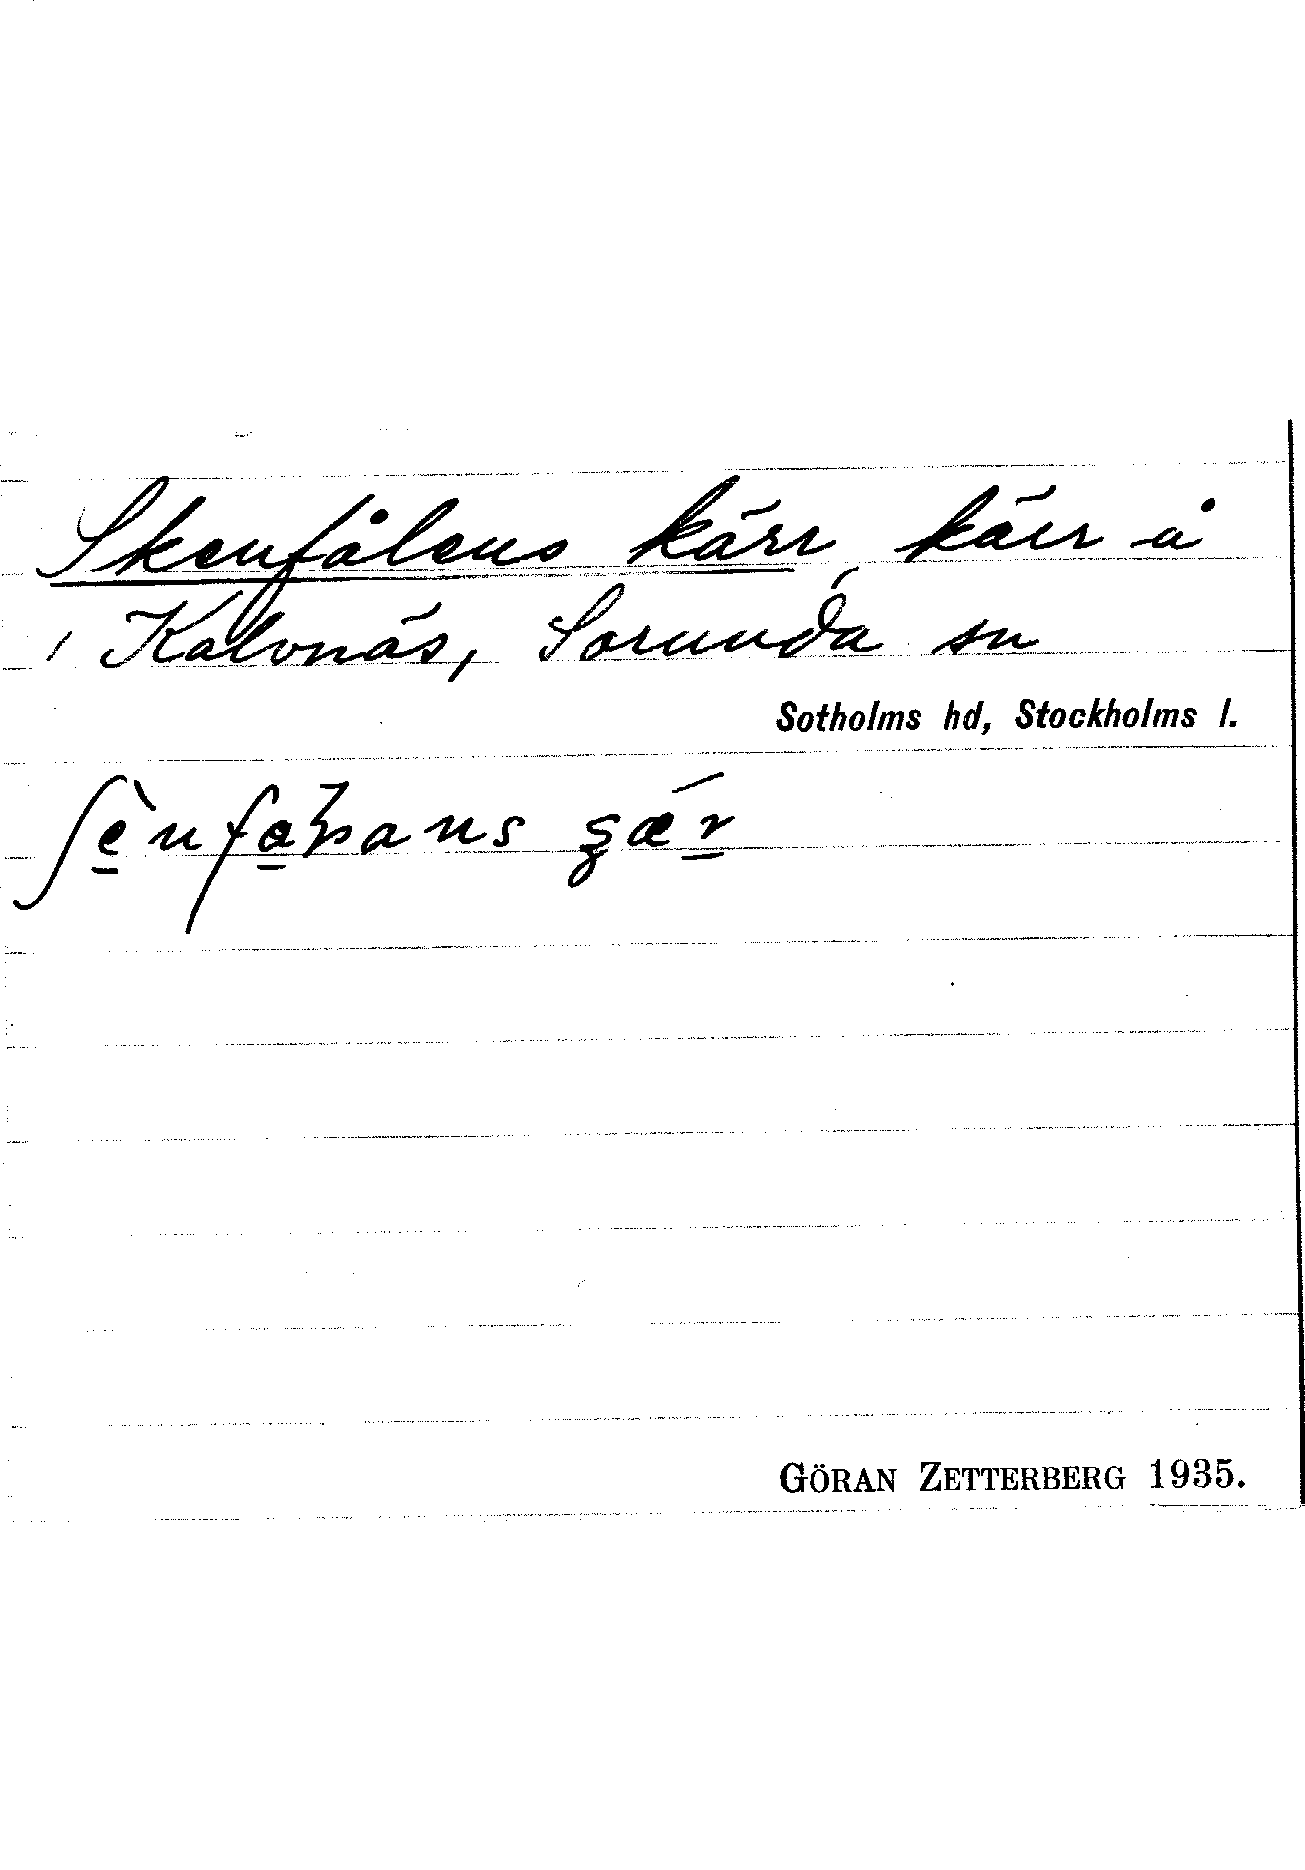 Skenfålens kärr kärr å
Kalvnäs, Sorunda sn
Sotholms hd, Stockholms l.
GÖRAN ZETTERBERG 1935.